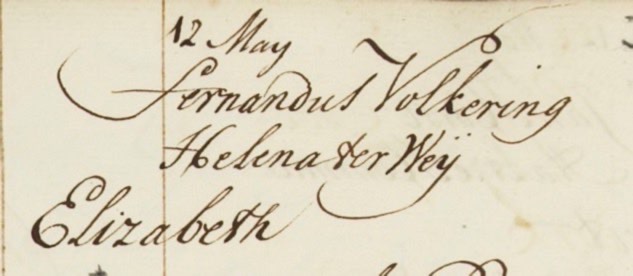 12 May
Fernandus Volkering
Helena ter Weÿ
Elizabeth